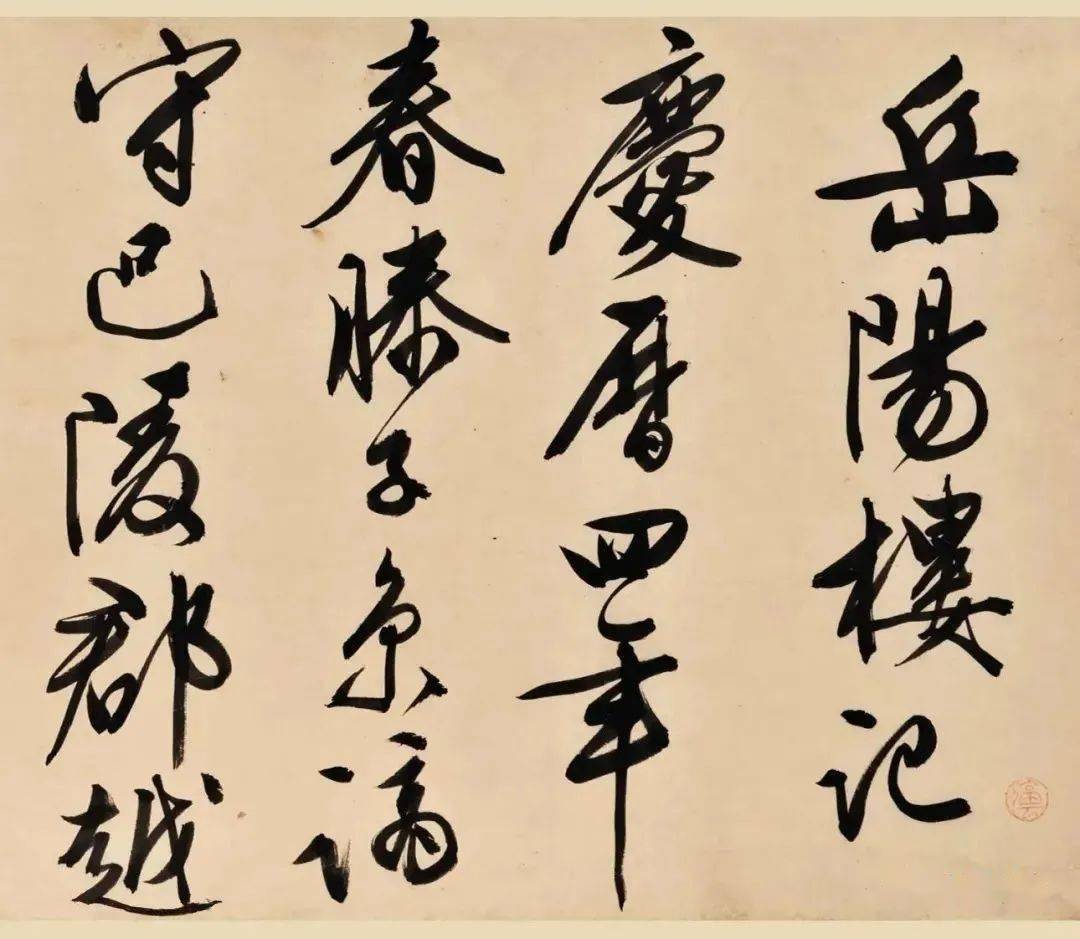 岳陽樓記
慶曆四年
春滕子京謫
守巴陵郡越